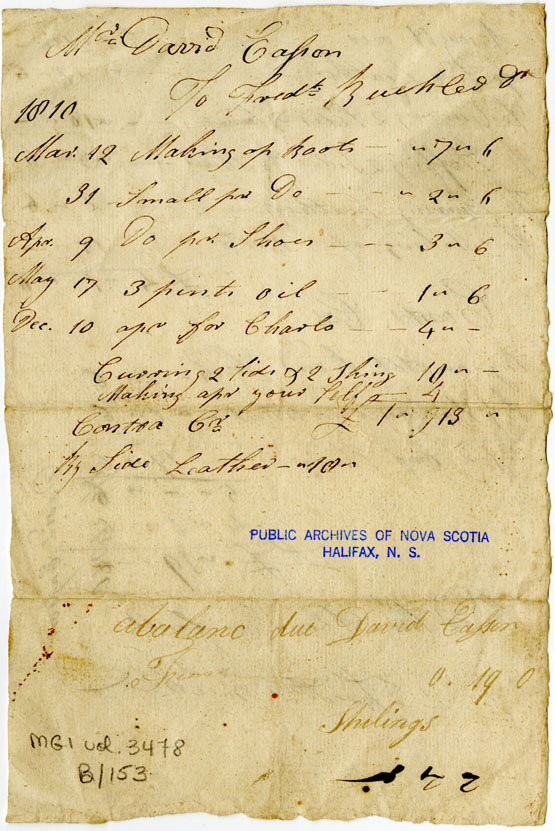 Mr David Eason
To Fredk Buehler Dr
1810
Mar. 12 Making a pr Boots — " 7 " 6
31 Small pr Do — " 2 " 6
Apr. 9 Do pr. Shoes — — 3 " 6
May 17 3 pints oil — 1 " 6
Dec. 10 apr for Charls — 4 " —
Curring 2 Sids & 2 Skins 10 " —
Making apr your Self 4
Contra Cr £ 1 " 13 "
By Side Leather — " 18 "
PUBLIC ARCHIVES OF NOVA SCOTIA
HALIFAX, N. S.
abalanc due David Eason
From 0. 19 0
Shilings
MG1 vol. 3478
B/153